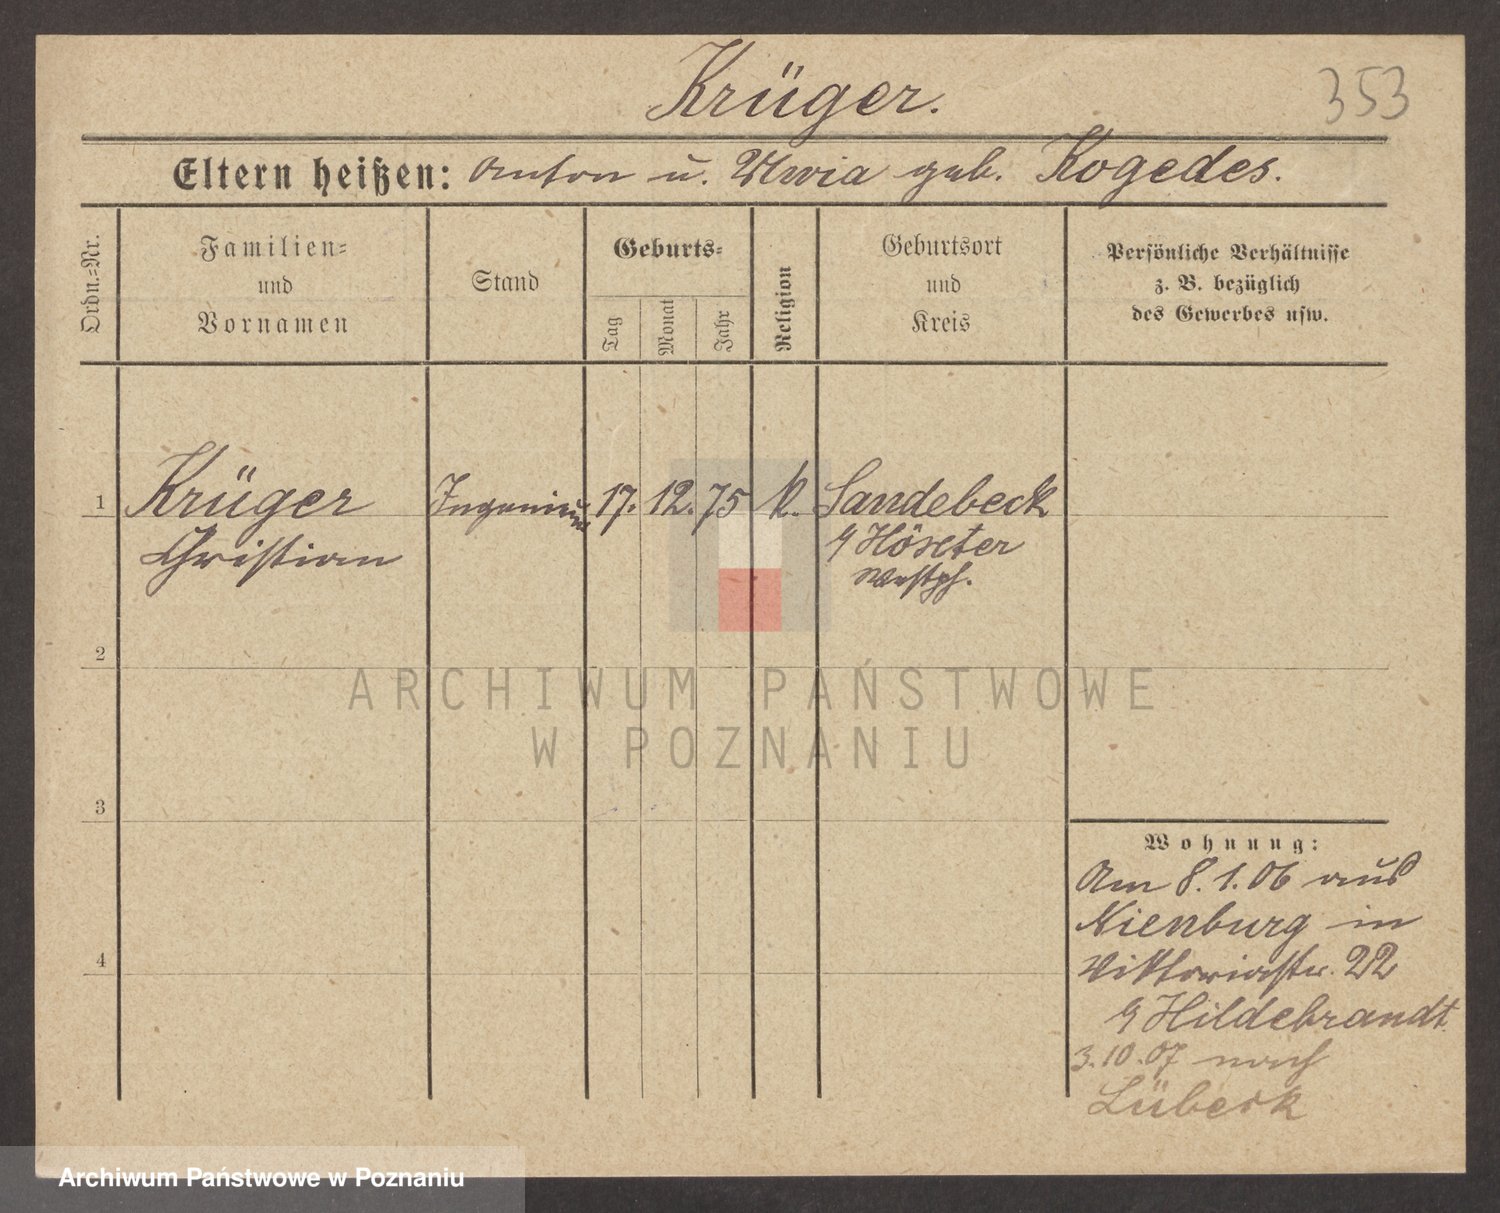 Krüger.
353
Eltern heißen: Anton u. Maria geb. Kogedes.
Ordn.=Nr.
Familien=
und
Vornamen
Stand
Geburts=
Tag
Monat
Jahr
Religion
Geburtsort
und
Kreis
Persönliche Verhältnisse
z. B. bezüglich
des Gewerbes usw.
1
Krüger
Christian
Ingenieur
17. 12. 75
k.
Sandebeck
Höxter
Westph.
2
ARCHIWUM PAŃSTWOWE
W POZNANIU
3
4
Wohnung:
Am 8.1.06 aus
Nienburg in
Viktoriastr. 22
Hildebrandt
3.10.07 nach
Lübeck
Archiwum Państwowe w Poznaniu